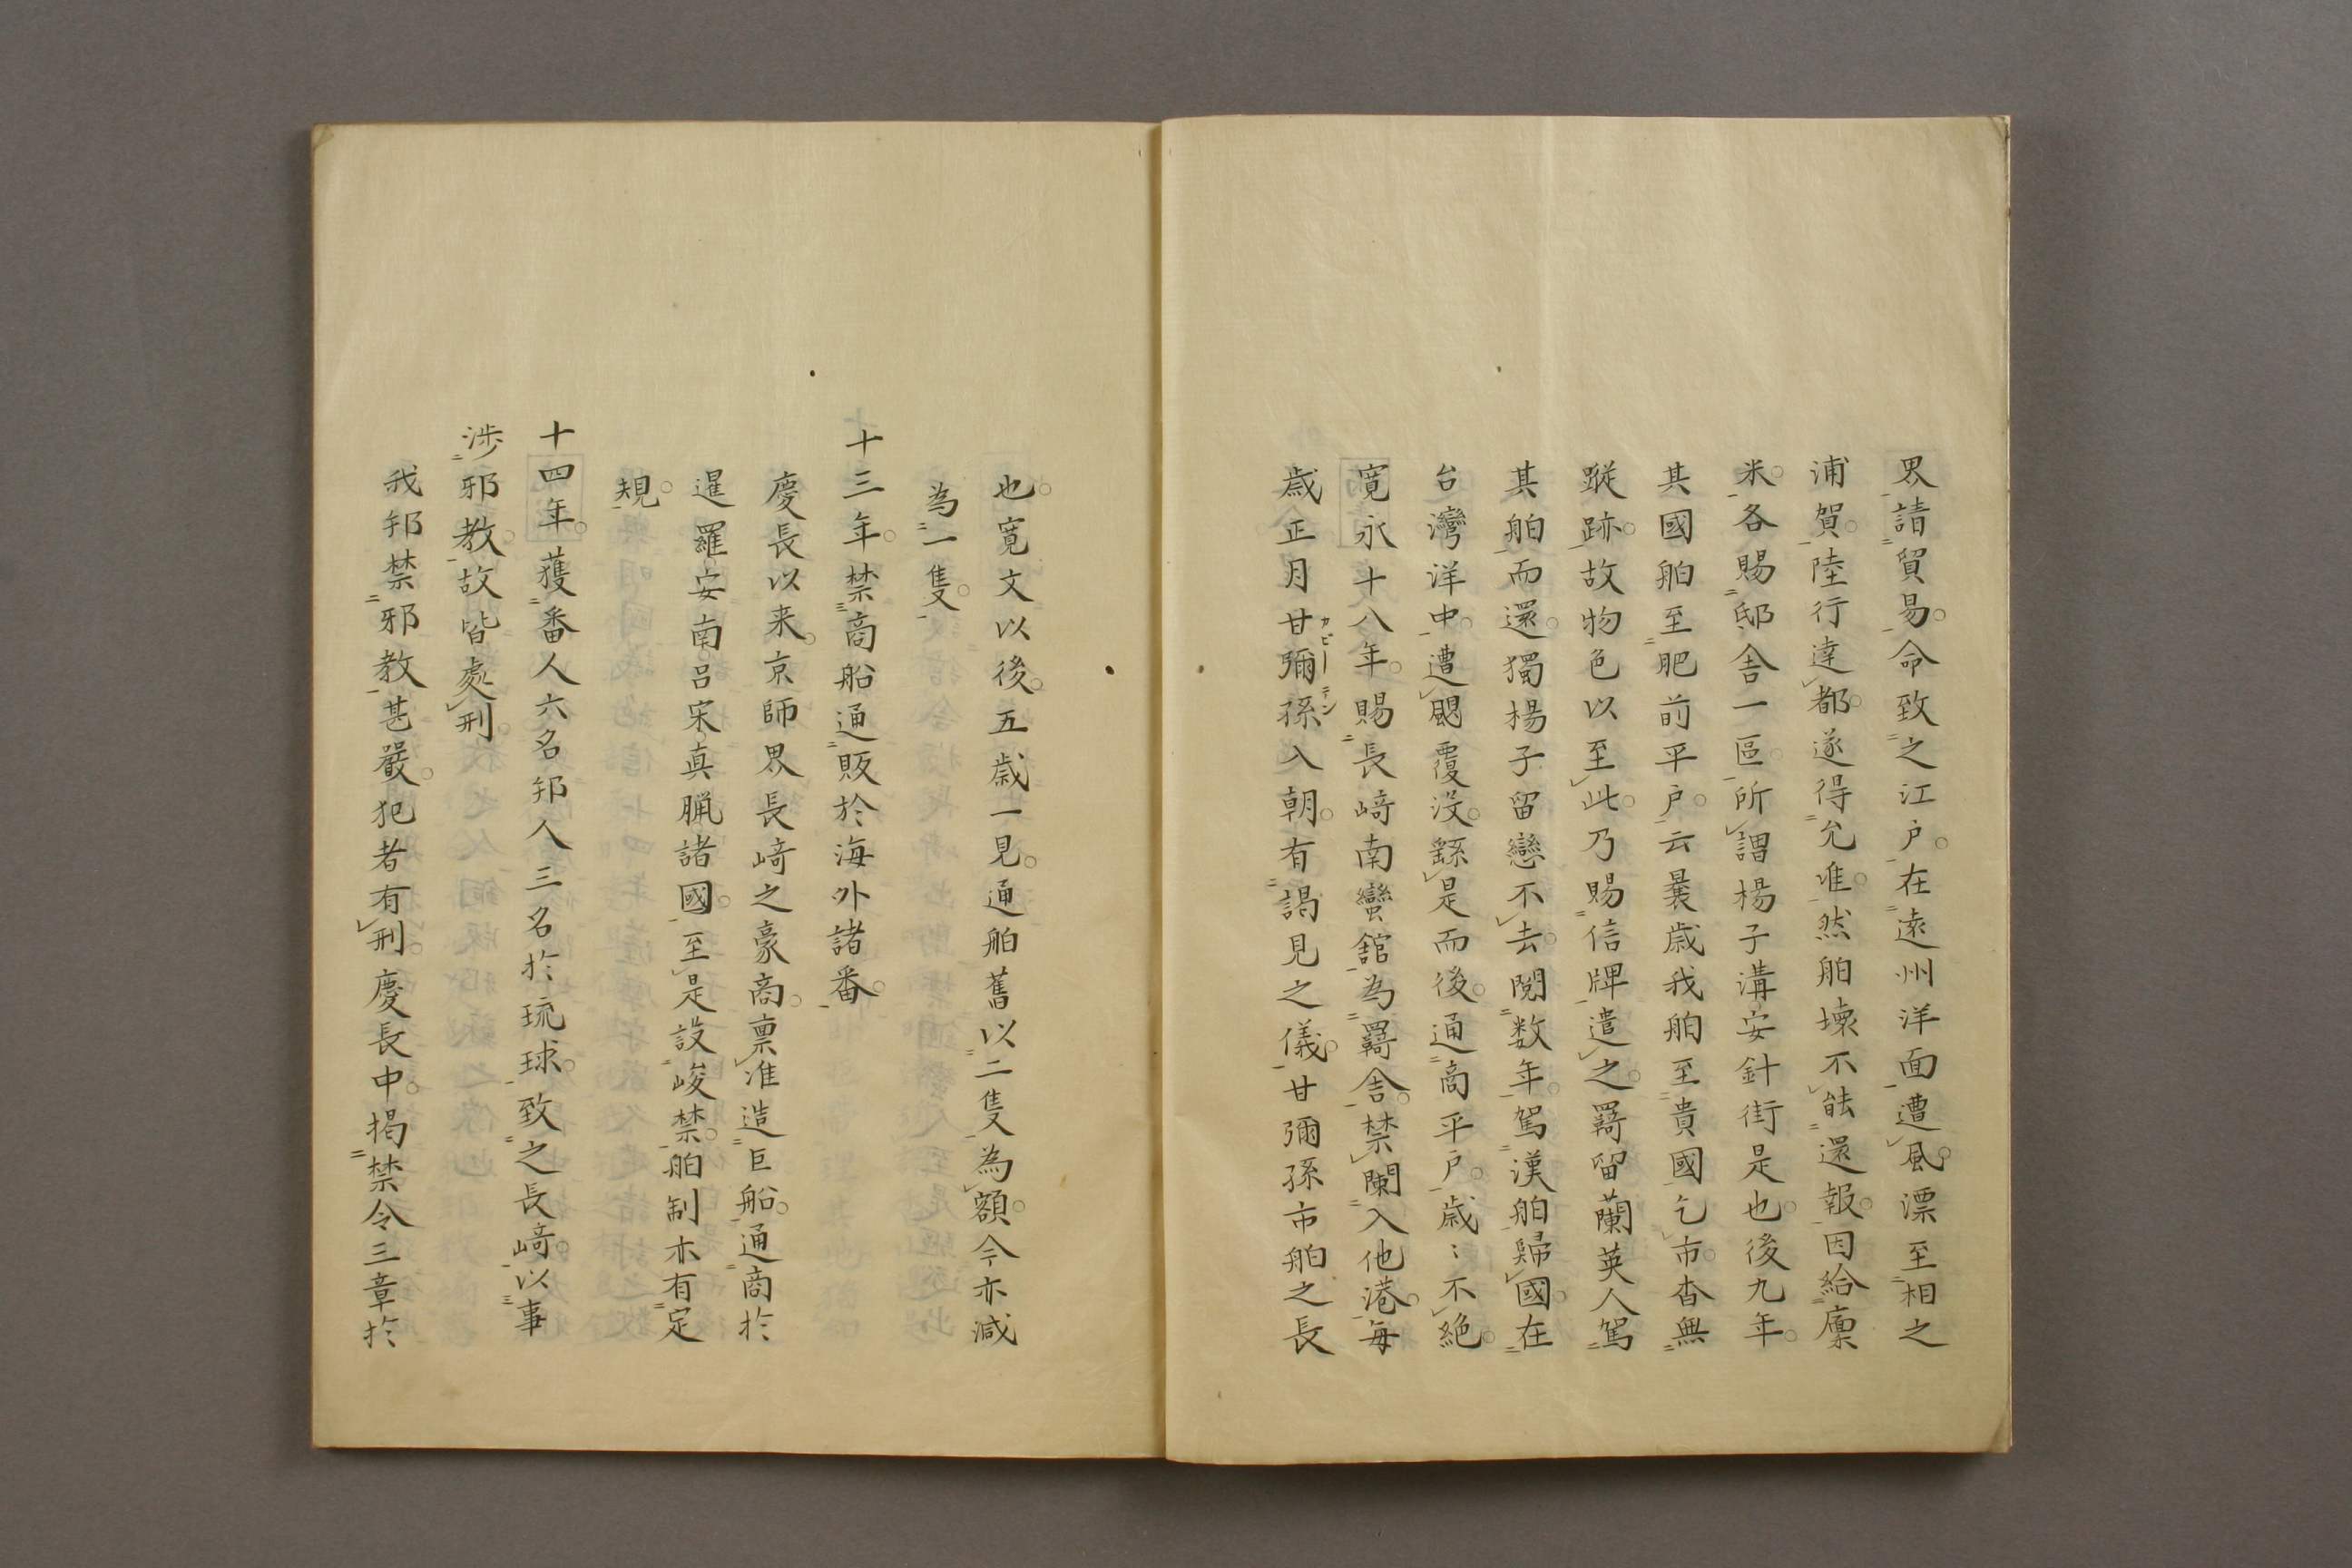 界請貿易。命致之江户。在遠州洋面遭風。漂至相之
浦賀。陸行達都。遂得允准。然舶壊不能還報。因給廩
米。各賜邸舎一區。所謂楊子溝安針街是也。後九年。
其國舶至肥前平户。云曩歳我舶至貴國乞市。杳無
蹤跡。故物色以至此。乃賜信牌遣之。羇留蘭英人駕
其舶而還。獨楊子留戀不去。閲数年。駕漢舶歸國。在
台灣洋中。遭颶覆没。繇是而後。通商平户。歳〻不絶。
寛永十八年。賜長﨑南蠻舘為羇舎。禁闌入他港。毎
歳正月甘彌孫カピーテン入朝。有謁見之儀。甘彌孫市舶之長
也。寛文以後。五歳一見。通舶舊以二隻為額。今亦減
為一隻。
十三年。禁商船通販於海外諸番。
慶長以来。京師界長﨑之豪商。禀准造巨船。通商於
暹羅安南呂宋真臘諸國。至是設峻禁。舶制亦有定
規。
十四年。獲番人六名邦人三名於琉球。致之長﨑。以事
渉邪教。故皆處刑。
我邦禁邪教甚嚴。犯者有刑。慶長中。掲禁令三章於